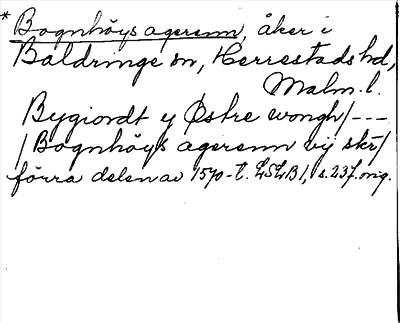 * Bognhöys agerenn, åker i
Baldringe sn, Herrestads hd,
Malm. l.
Bygiordt y Østre wongh/---
/Bognhöys agerenn vij skr/
förra delen av 1570-t. LSLB1, s. 237. orig.